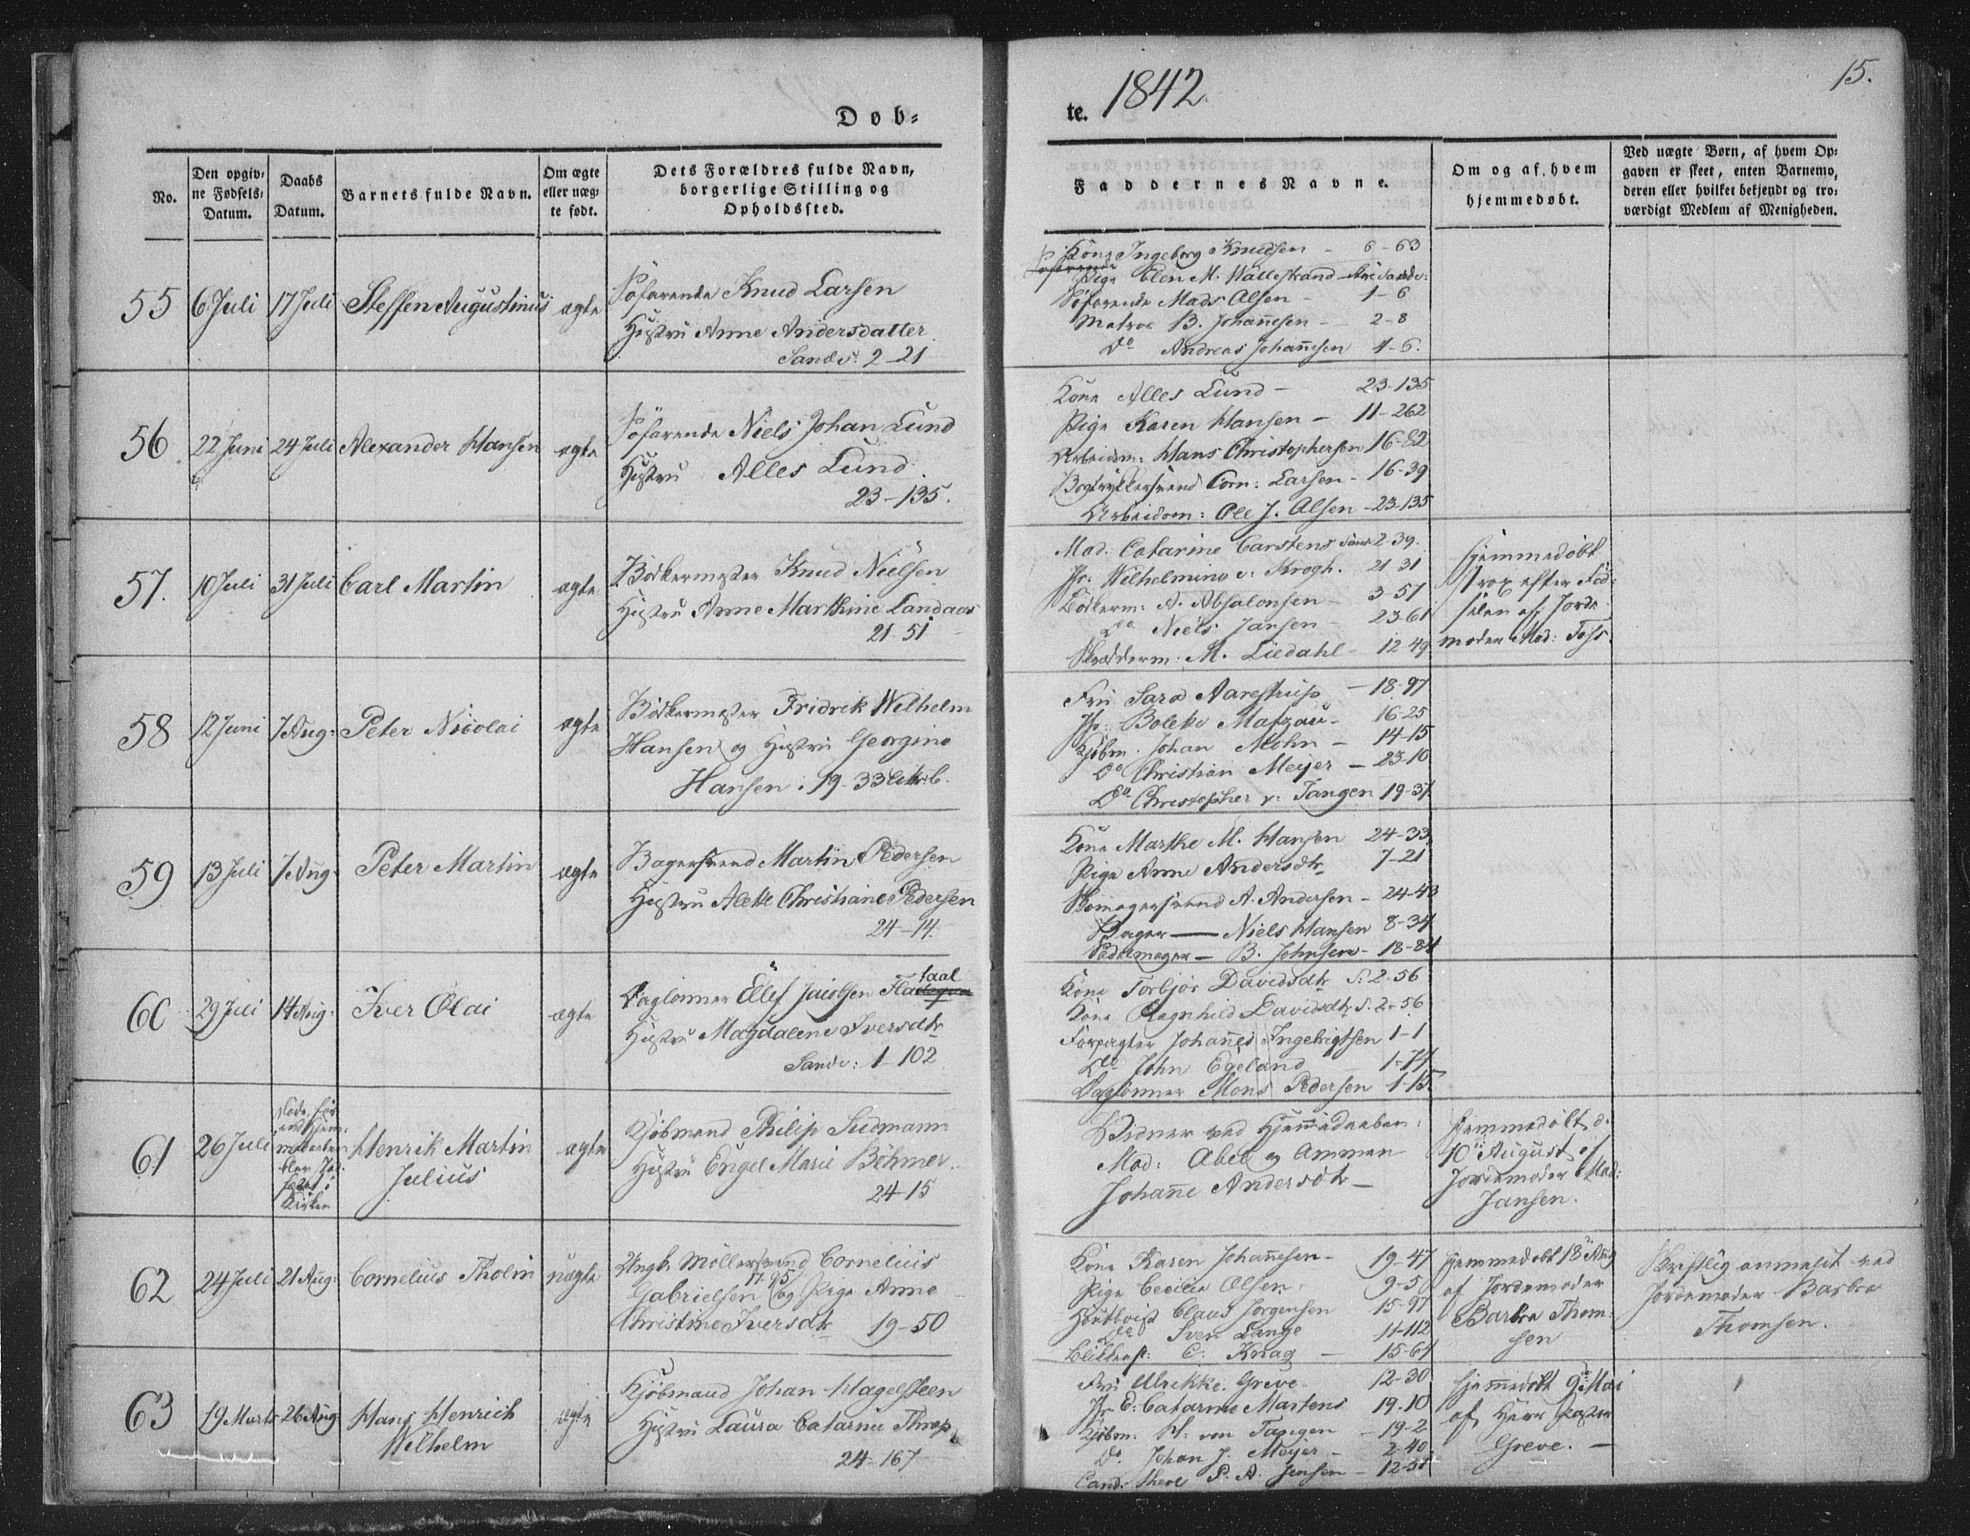 Døb=
te. 1842.
15.
No.
Den opgiv=
ne Fødsels=
Datum.
Daabs
Datum.
Barnets fulde Navn.
Om ægte
eller uæg=
te født.
Dets Forældres fulde Navn,
borgerlige Stilling og
Opholdssted.
Faddernes Navne.
Om og af hvem
hjemmedøbt.
Ved uægte Børn, af hvem Op=
gaven er skeet, enten Barnemo=
deren eller hvilket bekjendt og tro=
værdigt Medlem af Menigheden.
55 6 Juli 17 Juli Steffen Augustinus ægte
Søfarende Knud Larsen
Hustru Anne Andersdatter
Sandv: 2-21
Kone Ingeborg Knudsen - 6-63
Pige Elen M. Wallestrand
Søfarende Mads Olsen - 1-6
Matros B. Johannesen - 2-8
Do Andreas Johannesen 4-6.
56 22 Juni 24 Juli Alexander Hansen ægte
Søfarende Niels Johan Lund
Hustru Alles Lund
23-135.
Kone Alles Lund - 23-135
Pige Karen Hansen - 11-262
Arbeidsm: Hans Christophersen 16-82
Bogtrykkersvend Corn: Larsen - 16-39
Arbeidsm: Ole J. Olsen - 23-135
57. 10 Juli 31 Juli Carl Martin ægte
Bødkermester Knud Nielsen
Hustru Anne Marthine Landaas
21-51
Mad. Catarine Carstens 2-39.
Jfr: Wilhelmine v. Krogh. 21-31
Bødkerm: A. Absalonsen - 3-57
Do Niels Jansen - 23-61
Skrædderm: M. Liedahl - 12-49
Hjemmedøbt
strax efter Fød=
selen af Jorde
moder Mad: Foss.
58 12 Juni 7 Aug: Peter Nicolai ægte
Bødkermester Fridrik Wilhelm
Hansen og Hustru Georgine
Hansen: 19-33 Litr: b.
Fru Sara Aarestrup - 18-97
Jfr: Bolette Matzau - 16-25
Kjøbm. Johan Mohn - 14-15
Do Christian Meyer - 23-10
Do Christopher v: Tangen 19-37.
59 13 Juli 7 Aug: Peter Martin ægte
Bagersvend Martin Pedersen
Hustru Alette Christiane Pedersen
24-14.
Kone Marthe M. Hansen 24-33
Pige Anne Andersdtr 7-21
Skomagersvend A. Andersen - 24-43
Bager — Niels Hansen 8-34
Sadelmager - B. Johnsen - 18-84
60 29 Juli 14 Aug: Iver Olai ægte
taal
Daglønner Ellef Jacobsen
Hustru Magdalene Iversdtr
Sandv: 1-102
Kone Torbjør Davidsdtr S: 2-56
Kone Ragnhild Davidsdtr S: 2-56
Forpagter Johannes Ingebrigtsen 1-1
Do John Egeland 1-74
Daglønner Mons Pedersen 1-15
61 26 Juli Henrik Martin ægte
Julius
Døde før
Kirken
Kjøbmand Philip Sudmann
Hustru Engel Marie Böhmer.
24-15
Vidner ved Hjemmedaaben:
Mad: Abel og Ammen
Johanne Andersdtr —
Hjemmedøbt d:
10de August af
Jordemoder Mad:
Jansen.
62 24 Juli 21 Aug: Cornelius Tholin uægte
Ungk. Möllersvend Cornelius
17-95
Gabrielsen og Pige Anne
Christine Iversdtr 19-50
Kone Karen Johannesen - 19-47
Pige Cecilia Olsen 9-5
Claus Jørgensen 15-97
Do Iver Lange 11-112
C. Knag - 15-61
Hjemmedøbt 18 Aug
af Jordemoder
Barbra Thom=
sen
Skriftlig anmeldt ved
Jordemoder Barbra
Thomsen.
63 19 Marts 26 Aug: Hans Henrich ægte
Wilhelm
Kjøbmand Johan Hagelsteen
Hustru Laura Catarine Throp
24-167
Fru Ulrikke Greve - 12-30
Jfr C: Catarine Martens 19-10
Kjøbm: H. von Tangen - 19-2
Do. Johan J. Meyer - 2-40
Cand: theol S. A. Jensen - 12-51
Hjemmedøbt 9de Mai
af Herr Pastor
Greve. —